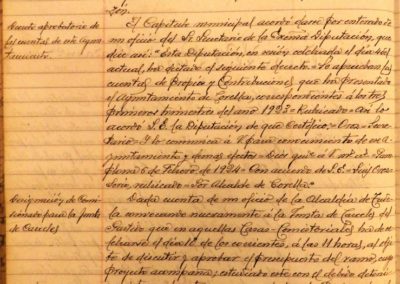 ción.
Decreto aprobatorio de
las cuentas de este Ayun-
tamiento.
El Capítulo municipal acordó darse por enterado de
un oficio del Sr. Secretario de la Excma Diputación, que
dice así: "Esta Diputación, en sesión celebrada el día
actual, ha dictado el siguiente decreto = Se aprueban las
cuentas de Propios y Contribuciones que ha presentado
el Ayuntamiento de Corella, correspondientes a los tres
primeros trimestres del año 1923 = Rubricado = Así lo
acordó S.E. la Diputación de que certifico = Oroz = Secre-
tario = Y lo comunico a V. para conocimiento de ese A-
yuntamiento y demás efectos = Dios guíe a V. m. a. Pam-
plona 6 de Febrero de 1924 = Con acuerdo de S.E. = Luis Oroz =
Srio, rubricado = Sor Alcalde de Corella."
Designación de Comi-
sionado para la Junta
de Cárceles
Dada cuenta de un oficio de la Alcaldía de Tude-
la convocando nuevamente a la Junta de Cárceles del
Partido que en aquellas Casas Consistoriales ha de
celebrarse el día 10 de los corrientes, a las 11 horas, al obje-
to de discutir y aprobar el presupuesto del ramo, cuyo
proyecto acompaña; estudiado este con el debido deteni-